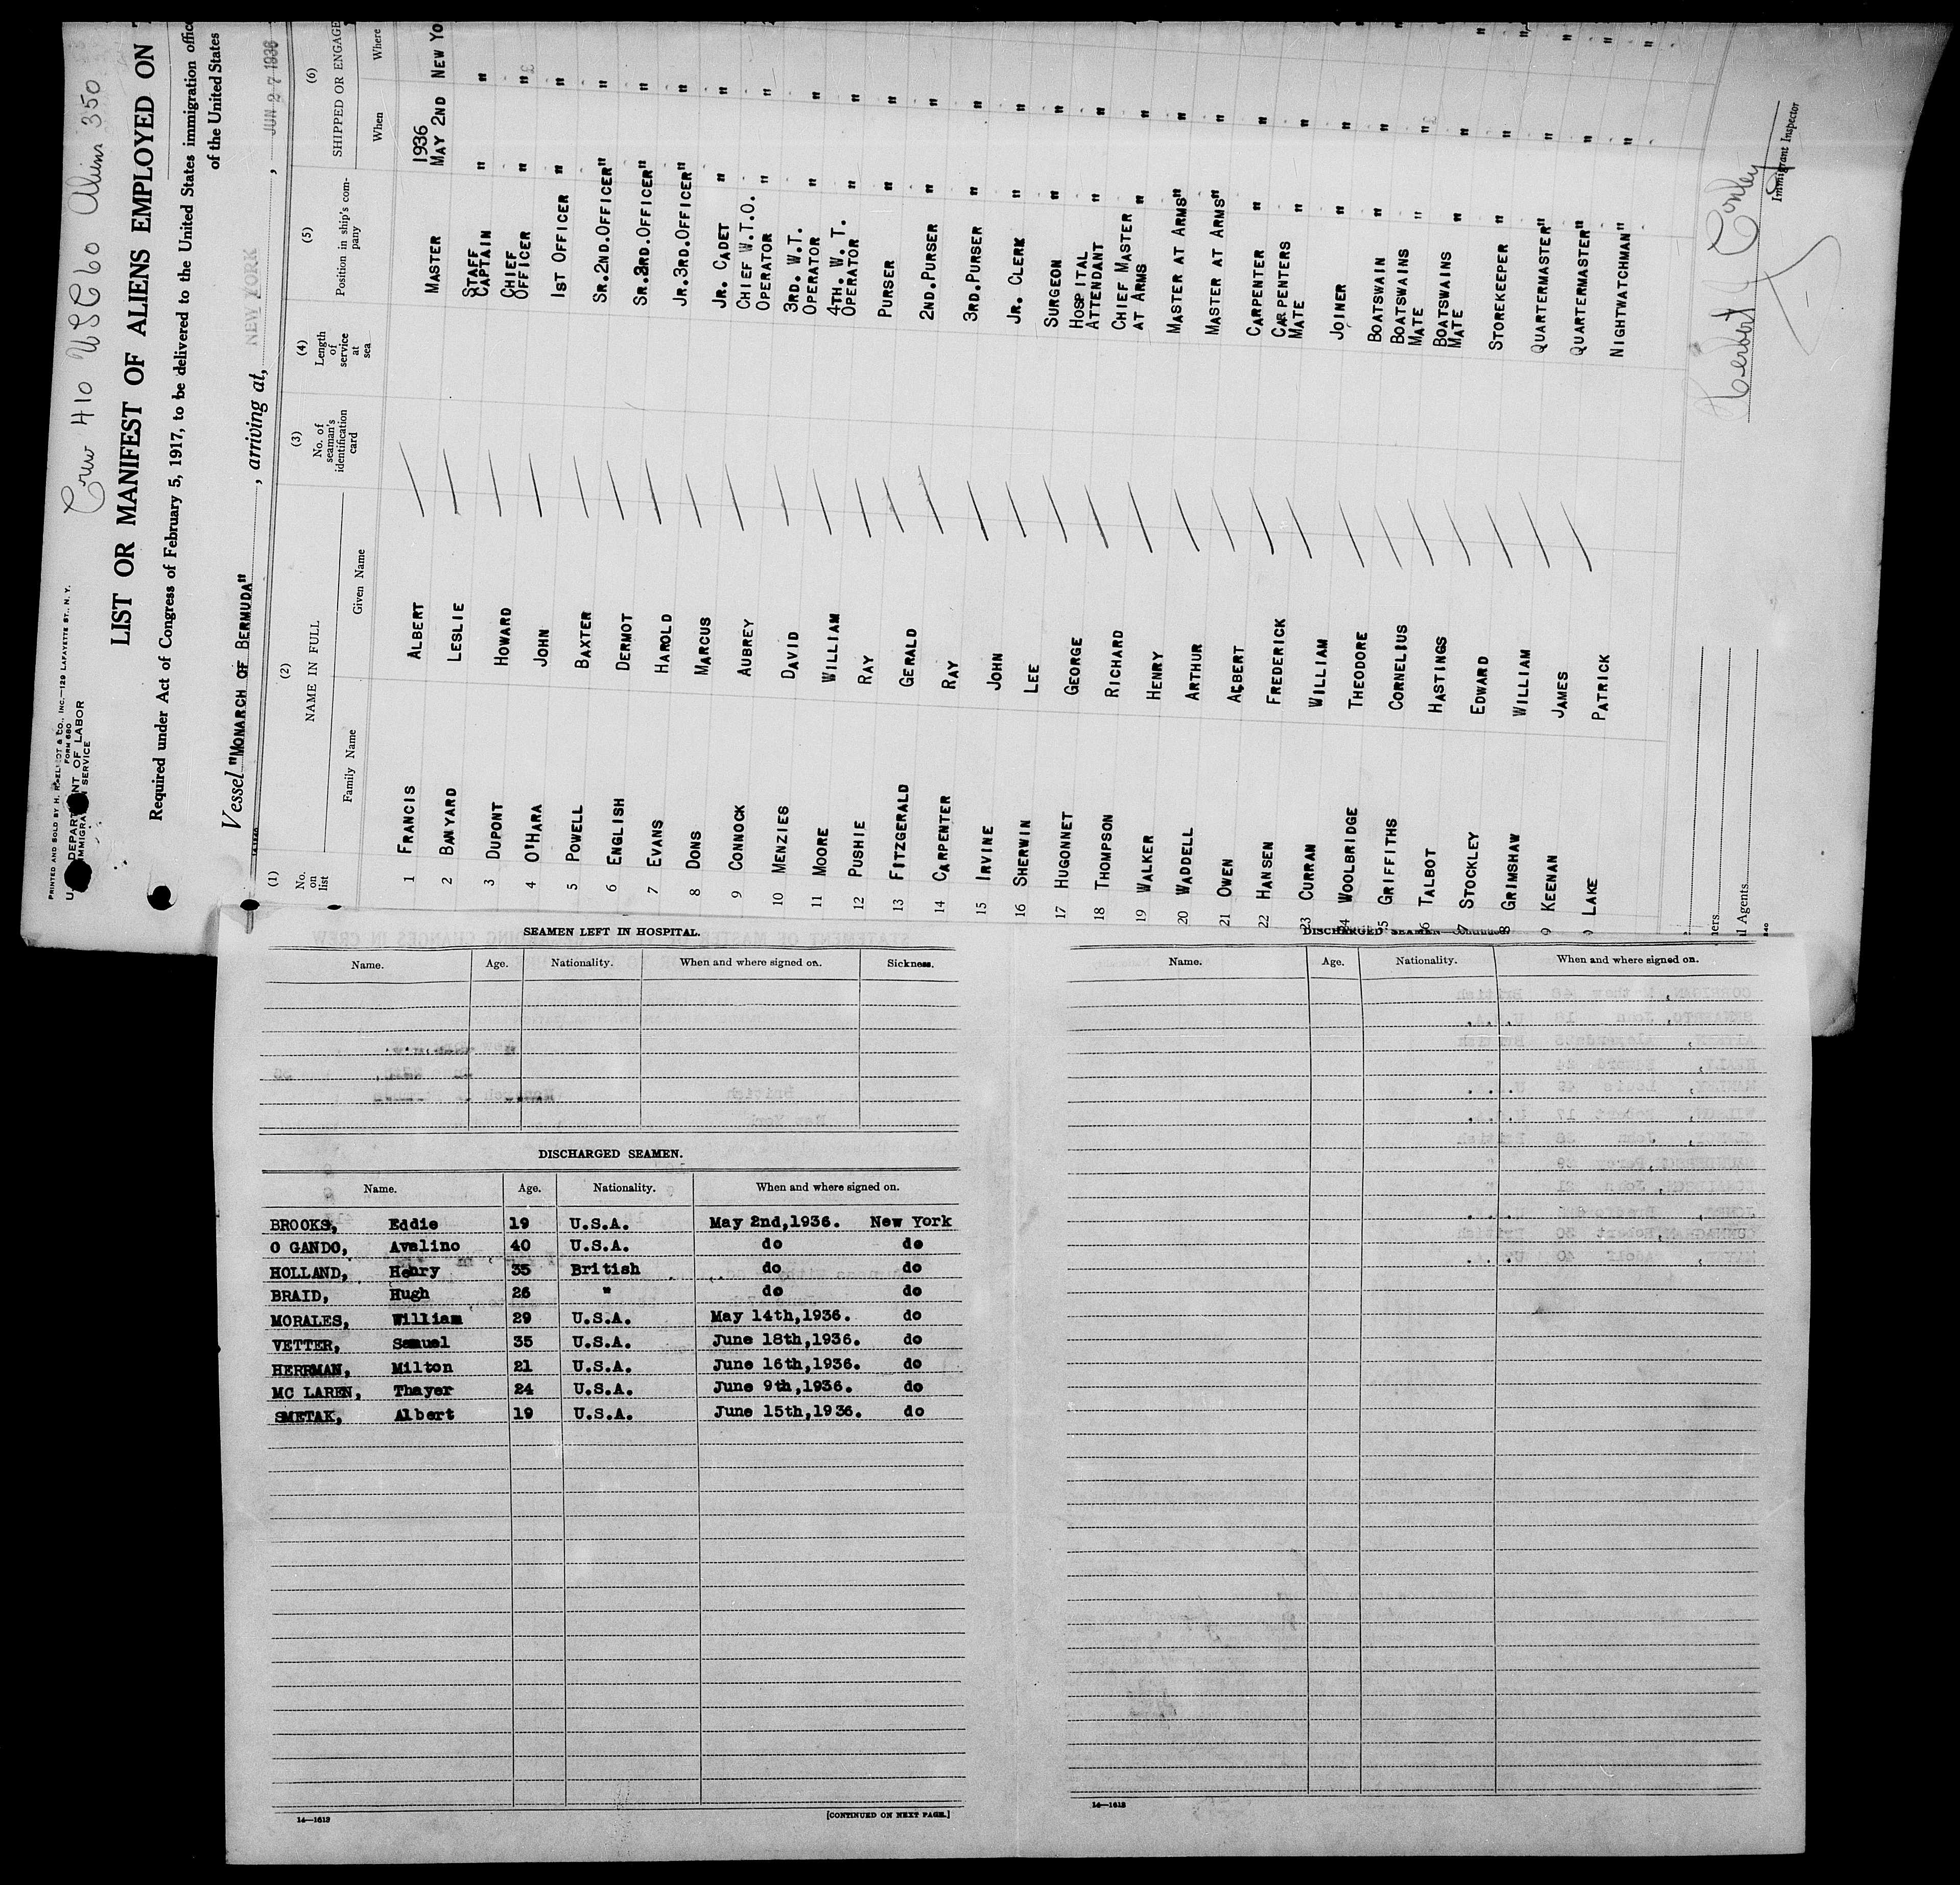 Crew 410 USC 60 Aliens 350
PRINTED AND SOLD BY H. & CO., INC.—129 LAFAYETTE ST., N. Y.
FORM 680
U. DEPARTMENT OF LABOR
IMMIGRATION SERVICE
LIST OR MANIFEST OF ALIENS EMPLOYED ON
Required under Act of Congress of February 5, 1917, to be delivered to the United States immigration
of the United States
Vessel "MONARCH OF BERMUDA", arriving at, NEW YORK, JUN 27 1936
(1) (2) (3) (4) (5) (6)
No. on list NAME IN FULL No. of seaman's identification card Length of service at sea Position in ship's company SHIPPED OR ENGAGE
Family Name Given Name When Where
1936
1 FRANCIS ALBERT MASTER MAY 2ND NEW YO
2 BANYARD LESLIE STAFF CAPTAIN " "
3 DUPONT HOWARD CHIEF OFFICER " "
4 O'HARA JOHN 1ST OFFICER " "
5 POWELL BAXTER SR.2ND.OFFICER" "
6 ENGLISH DERMOT SR.3RD.OFFICER" "
7 EVANS HAROLD JR.3RD.OFFICER" "
8 DONS MARCUS JR. CADET " "
9 CONNOCK AUBREY CHIEF W.T.O. OPERATOR " "
10 MENZIES DAVID 3RD. W.T. OPERATOR " "
11 MOORE WILLIAM 4TH. W.T. OPERATOR " "
12 PUSHIE RAY PURSER " "
13 FITZGERALD GERALD 2ND.PURSER " "
14 CARPENTER RAY 3RD.PURSER " "
15 IRVINE JOHN JR. CLERK " "
16 SHERWIN LEE SURGEON " "
17 HUGONNET GEORGE HOSPITAL ATTENDANT " "
18 THOMPSON RICHARD CHIEF MASTER AT ARMS " "
19 WALKER HENRY MASTER AT ARMS" "
20 WADDELL ARTHUR MASTER AT ARMS" "
21 OWEN ALBERT CARPENTER " "
22 HANSEN FREDERICK CARPENTERS MATE " "
23 CURRAN WILLIAM JOINER " "
24 WOOLBRIDGE THEODORE BOATSWAIN " "
25 GRIFFITHS CORNELIUS BOATSWAINS MATE " "
6 TALBOT HASTINGS BOATSWAINS MATE " "
7 STOCKLEY EDWARD STOREKEEPER " "
8 GRIMSHAW WILLIAM QUARTERMASTER" "
9 KEENAN JAMES QUARTERMASTER" "
LAKE PATRICK NIGHTWATCHMAN" "
Herbert J Conley
Immigrant Inspector
ners
l Agents
SEAMEN LEFT IN HOSPITAL.
Name. Age. Nationality. When and where signed on. Sickness.
DISCHARGED SEAMEN.
Name. Age. Nationality. When and where signed on.
BROOKS, Eddie 19 U.S.A. May 2nd,1936. New York
O GANDO, Avelino 40 U.S.A. do do
HOLLAND, Henry 35 British do do
BRAID, Hugh 26 " do do
MORALES, William 29 U.S.A. May 14th,1936. do
VETTER, Samuel 35 U.S.A. June 18th,1936. do
HERRMAN, Milton 21 U.S.A. June 16th,1936. do
MC LAREN, Thayer 24 U.S.A. June 9th,1936. do
SMETAK, Albert 19 U.S.A. June 15th,1936. do
14—1613
[CONTINUED ON NEXT PAGE.]
DISCHARGED SEAMEN—Continued.
Name. Age. Nationality. When and where signed on.
14—1613